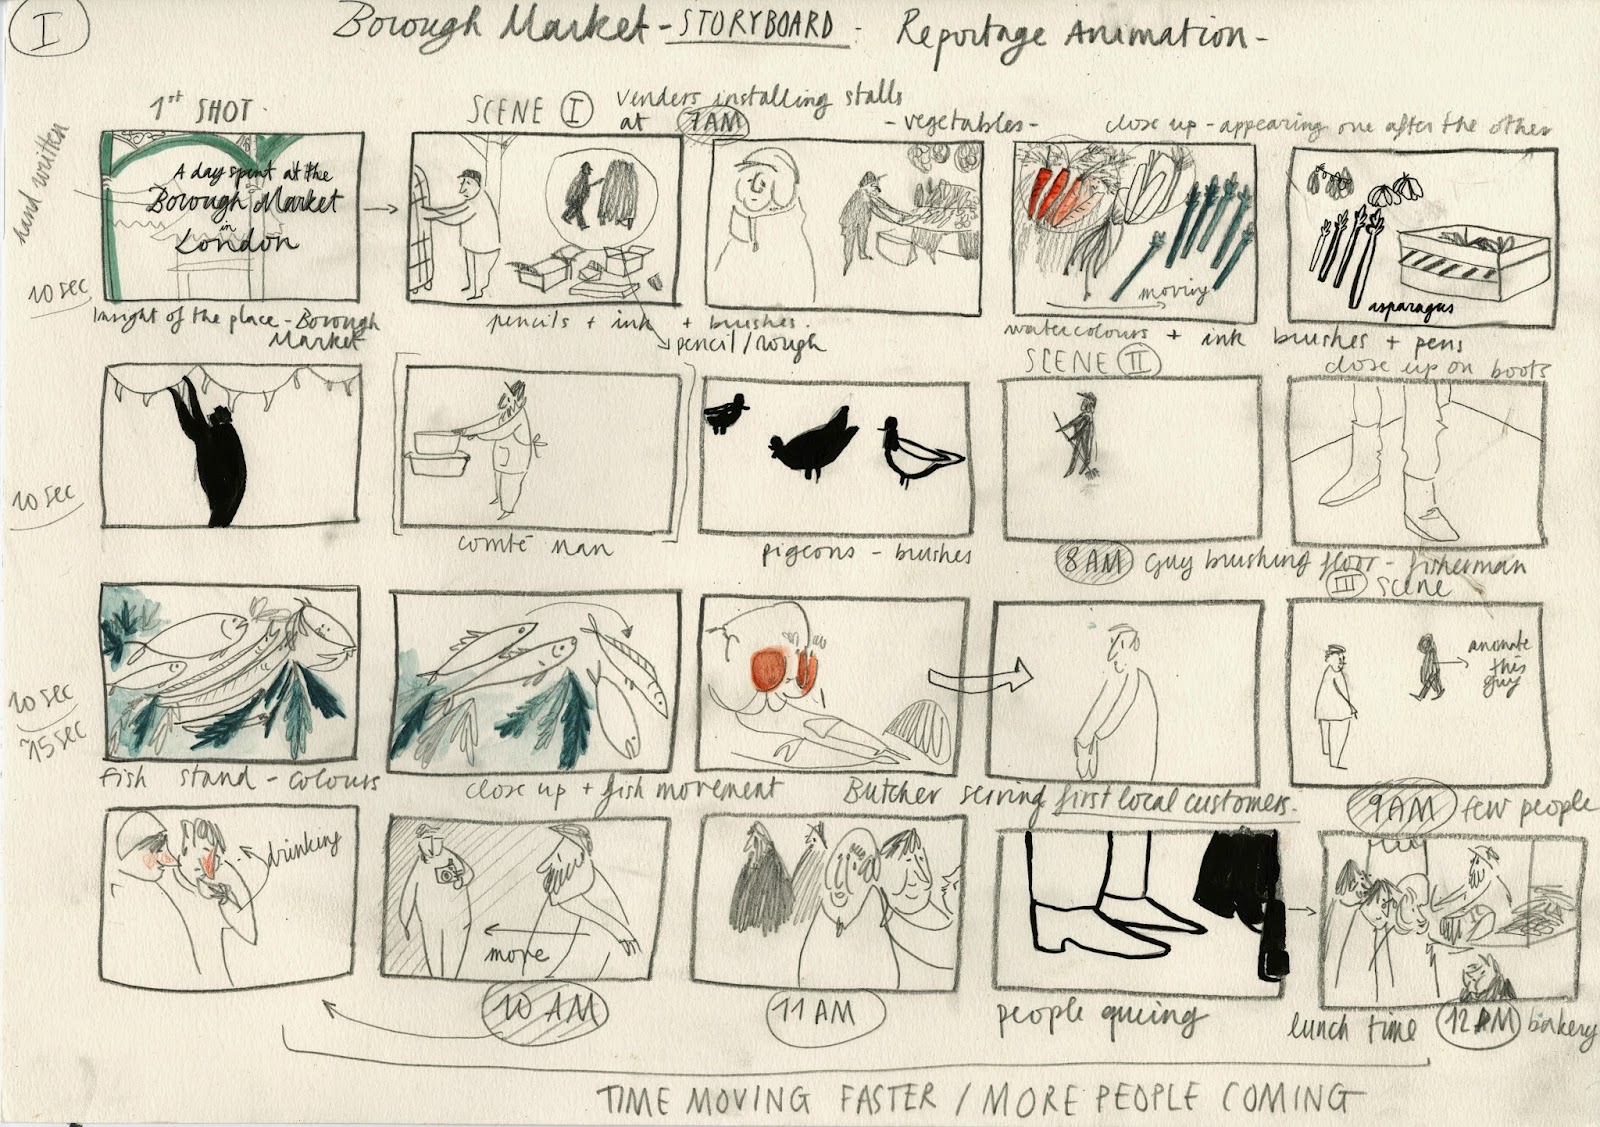 I
Borough Market - STORYBOARD - Reportage Animation -
1st SHOT.
SCENE I
Venders installing stalls
at 7AM
- vegetables -
close up - appearing one after the other
hand written
A day spent at the
Borough Market
in
London
moving
asparagus
10 sec
Insight of the place - Borough
Market
pencils + ink + brushes.
pencil/rough
watercolours + ink brushes + pens
SCENE II
close up on boots
10 sec
comté man
pigeons - brushes
8AM guy brushing floor - fisherman
III scene
animate
this
guy
10 sec
~15 sec
Fish stand - colours
close up + fish movement
Butcher serving first local customers.
9AM few people
drinking
move
10 AM
11 AM
people queing
lunch time 12AM bakery
TIME MOVING FASTER / MORE PEOPLE COMING